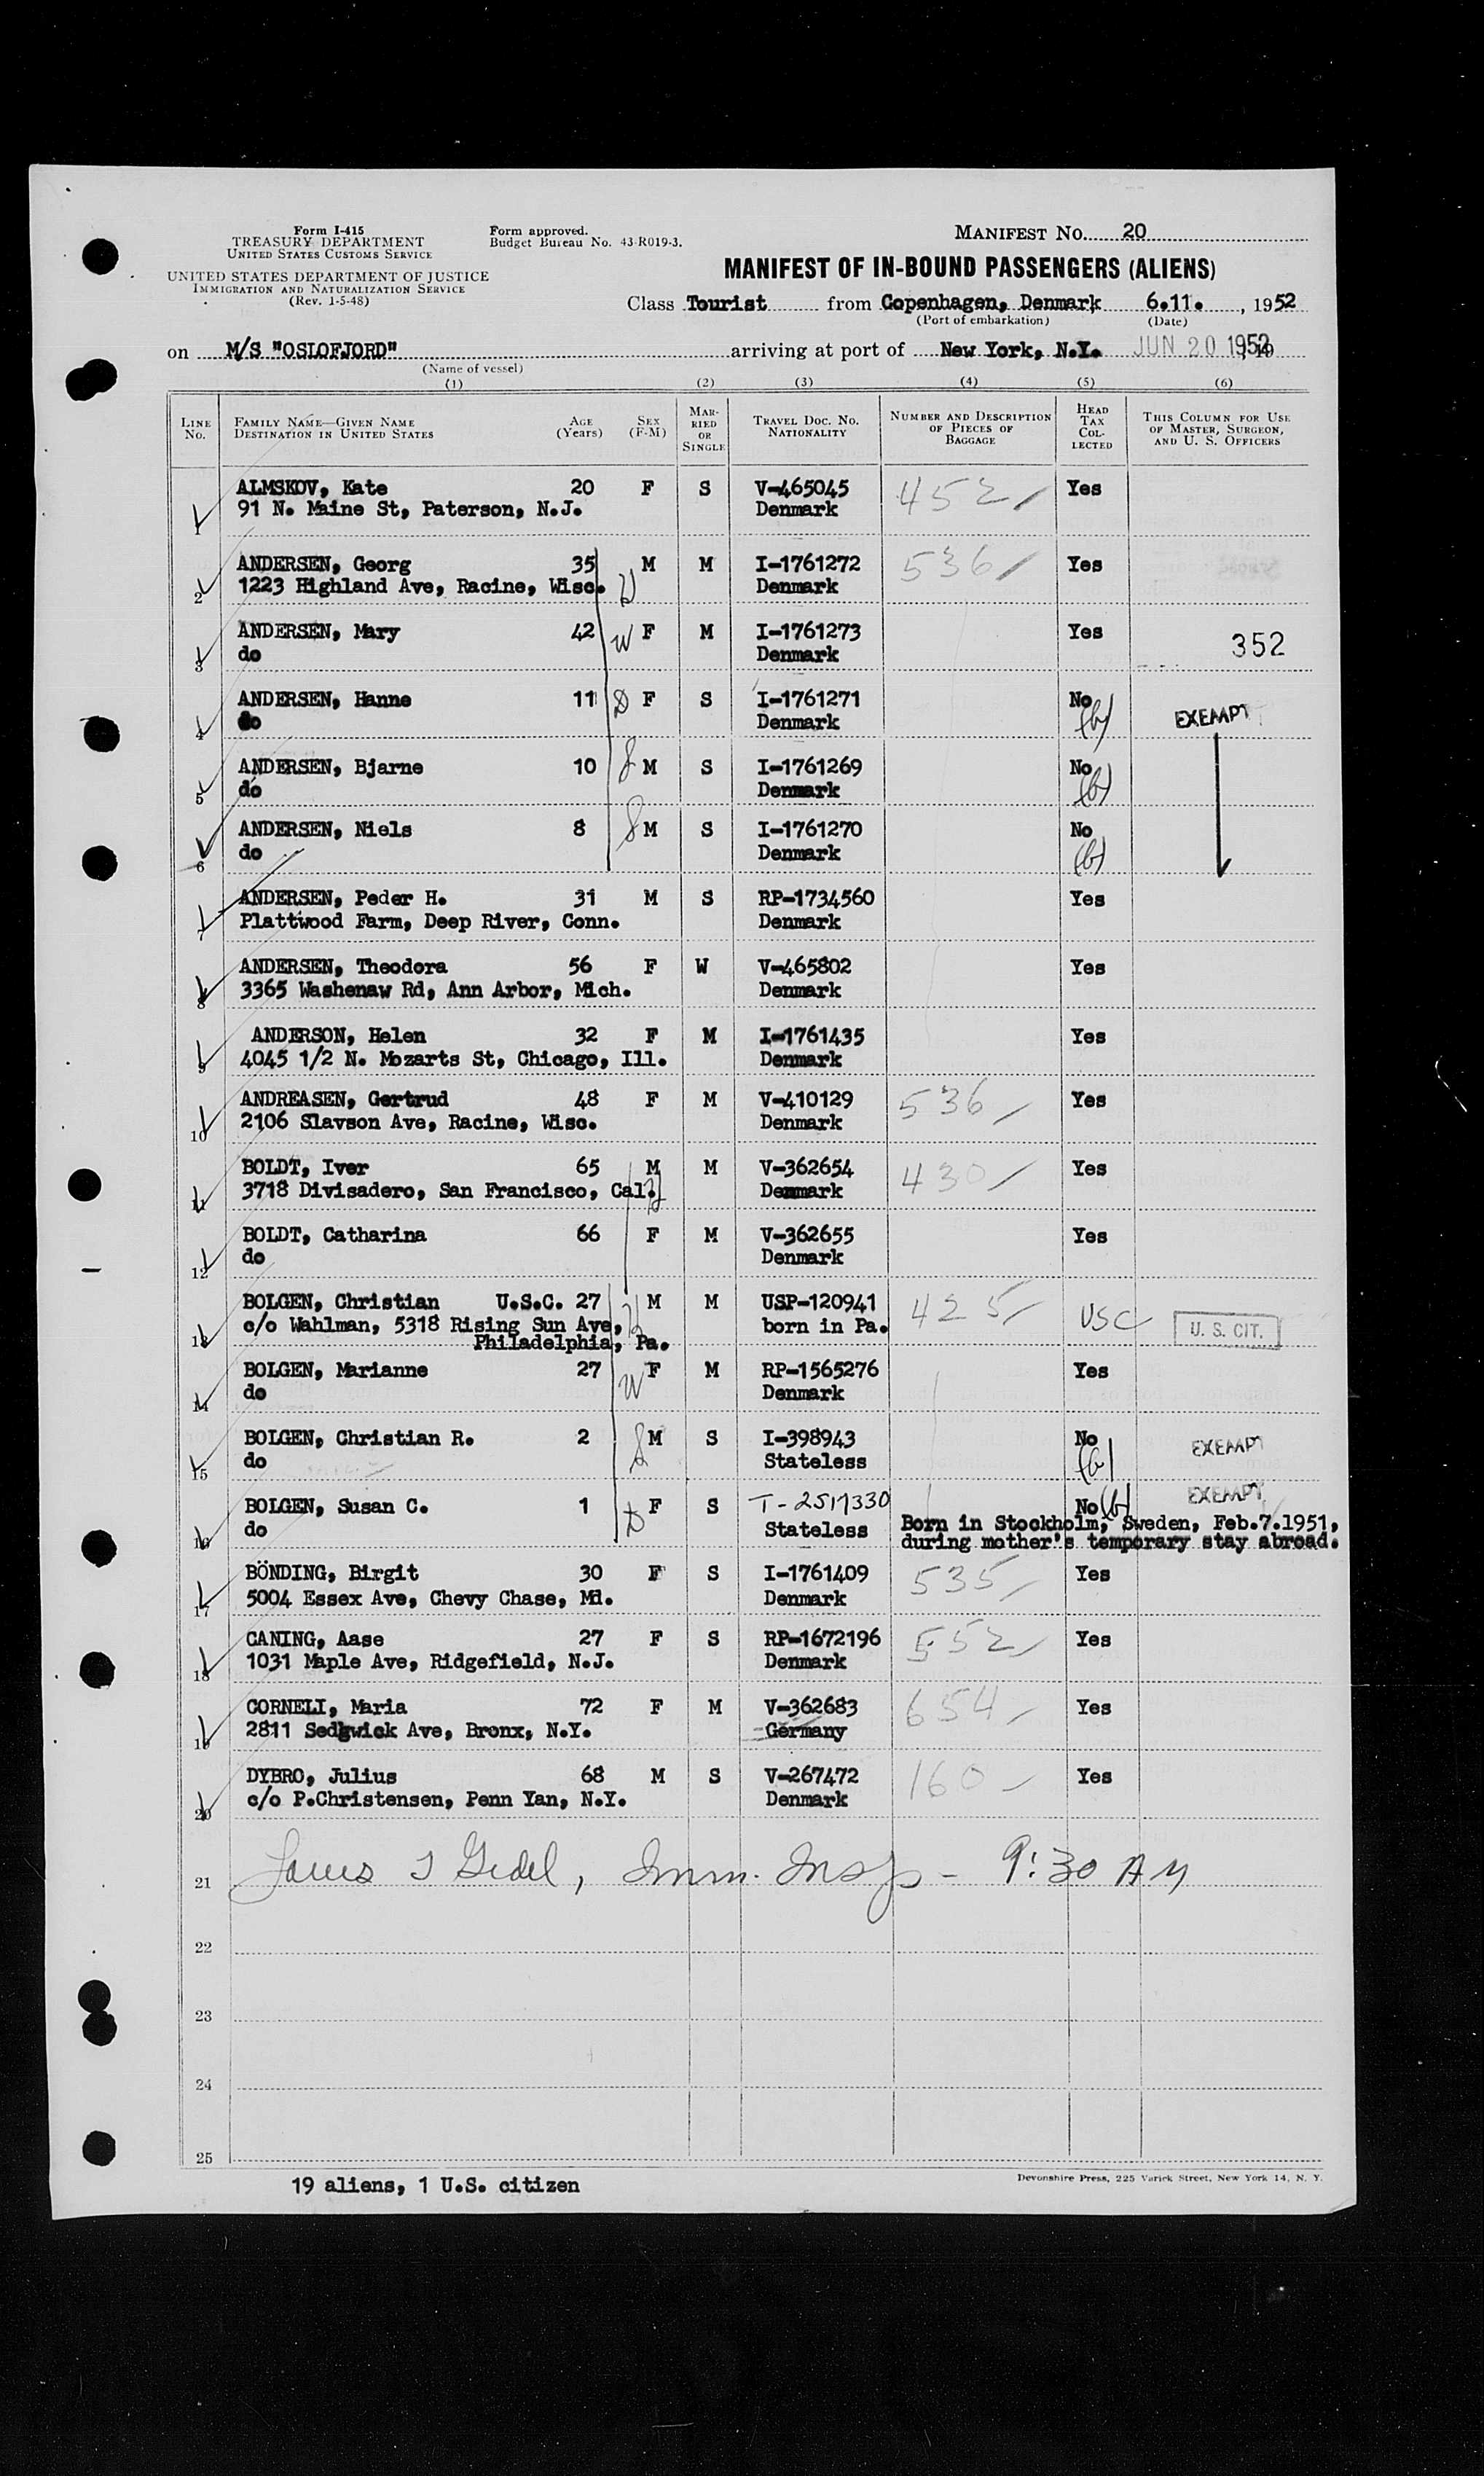 Form I-415
TREASURY DEPARTMENT
UNITED STATES CUSTOMS SERVICE
UNITED STATES DEPARTMENT OF JUSTICE
IMMIGRATION AND NATURALIZATION SERVICE
(Rev. 1-5-48)
Form approved.
Budget Bureau No. 43-R019-3.
MANIFEST No. 20
MANIFEST OF IN-BOUND PASSENGERS (ALIENS)
Class Tourist from Copenhagen, Denmark 6.11. , 1952
(Port of embarkation) (Date)
on M/S "OSLOFJORD" arriving at port of New York, N.Y. JUN 20 1952
(Name of vessel)
(1) (2) (3) (4) (5) (6)
LINE No. FAMILY NAME—GIVEN NAME DESTINATION IN UNITED STATES AGE (Years) SEX (F-M) MARRIED OR SINGLE TRAVEL DOC. NO. NATIONALITY NUMBER AND DESCRIPTION OF PIECES OF BAGGAGE HEAD TAX COLLECTED THIS COLUMN FOR USE OF MASTER, SURGEON, AND U. S. OFFICERS
1 ALMSKOV, Kate 20 F S V-465045 452 Yes
91 N. Maine St, Paterson, N.J. Denmark
2 ANDERSEN, Georg 35 M M I-1761272 536 Yes
1223 Highland Ave, Racine, Wisc. Denmark
3 ANDERSEN, Mary 42 W F M I-1761273 Yes 352
do Denmark
4 ANDERSEN, Hanne 11 D F S I-1761271 No (b) EXEMPT
do Denmark
5 ANDERSEN, Bjarne 10 S M S I-1761269 No (b)
do Denmark
6 ANDERSEN, Niels 8 S M S I-1761270 No (b)
do Denmark
7 ANDERSEN, Peder H. 31 M S RP-1734560 Yes
Plattwood Farm, Deep River, Conn. Denmark
8 ANDERSEN, Theodora 56 F W V-465802 Yes
3365 Washenaw Rd, Ann Arbor, Mich. Denmark
9 ANDERSON, Helen 32 F M I-1761435 Yes
4045 1/2 N. Mozarts St, Chicago, Ill. Denmark
10 ANDREASEN, Gertrud 48 F M V-410129 536 Yes
2106 Slavson Ave, Racine, Wisc. Denmark
11 BOLDT, Iver 65 M M V-362654 430 Yes
3718 Divisadero, San Francisco, Cal. Denmark
12 BOLDT, Catharina 66 F M V-362655 Yes
do Denmark
13 BOLGEN, Christian U.S.C. 27 M M USP-120941 425 USC U. S. CIT.
c/o Wahlman, 5318 Rising Sun Ave, born in Pa.
Philadelphia, Pa.
14 BOLGEN, Marianne 27 W F M RP-1565276 Yes
do Denmark
15 BOLGEN, Christian R. 2 S M S I-398943 No (b) EXEMPT
do Stateless
16 BOLGEN, Susan C. 1 D F S T-2517330 No (b) EXEMPT
do Stateless Born in Stockholm, Sweden, Feb.7.1951,
during mother's temporary stay abroad.
17 BÖNDING, Birgit 30 F S I-1761409 535 Yes
5004 Essex Ave, Chevy Chase, Md. Denmark
18 CANING, Aase 27 F S RP-1672196 552 Yes
1031 Maple Ave, Ridgefield, N.J. Denmark
19 CORNELI, Maria 72 F M V-362683 654 Yes
2811 Sedgwick Ave, Bronx, N.Y. Germany
20 DYBRO, Julius 68 M S V-267472 160 Yes
c/o P.Christensen, Penn Yan, N.Y. Denmark
21 Imm. Insp - 9:30 AM
22
23
24
25
19 aliens, 1 U.S. citizen
Devonshire Press, 225 Varick Street, New York 14, N. Y.